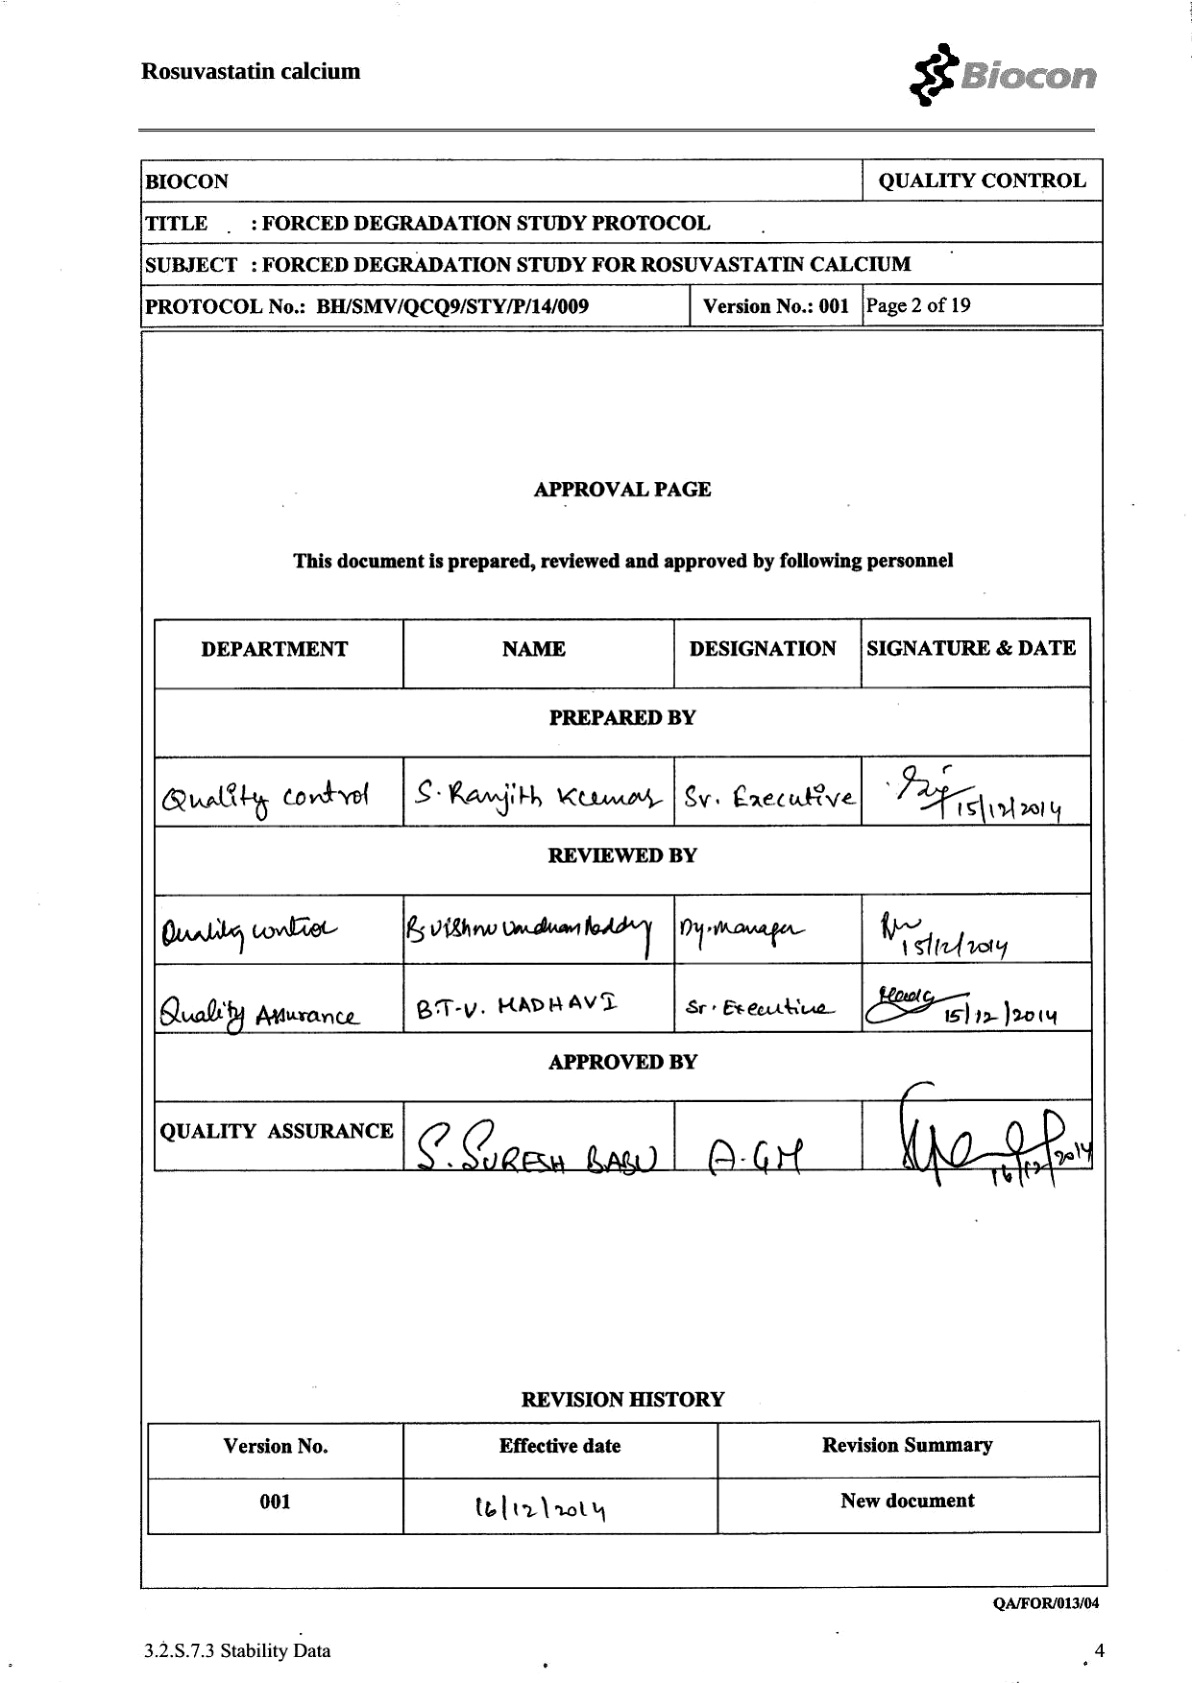 Rosuvastatin calcium
Biocon
BIOCON QUALITY CONTROL
TITLE : FORCED DEGRADATION STUDY PROTOCOL
SUBJECT : FORCED DEGRADATION STUDY FOR ROSUVASTATIN CALCIUM
PROTOCOL No.: BH/SMV/QCQ9/STY/P/14/009 Version No.: 001 Page 2 of 19
APPROVAL PAGE
This document is prepared, reviewed and approved by following personnel
DEPARTMENT NAME DESIGNATION SIGNATURE & DATE
PREPARED BY
Quality control S. Ranjith Kumar Sr. Executive 15/12/2014
REVIEWED BY
Quality control B Vishnu Vardhan Reddy Dy. Manager 15/12/2014
Quality Assurance B.T.V. MADHAVI Sr. Executive 15/12/2014
APPROVED BY
QUALITY ASSURANCE S. SURESH BABU A.GM 16/12/2014
REVISION HISTORY
Version No. Effective date Revision Summary
001 16/12/2014 New document
QA/FOR/013/04
3.2.S.7.3 Stability Data 4